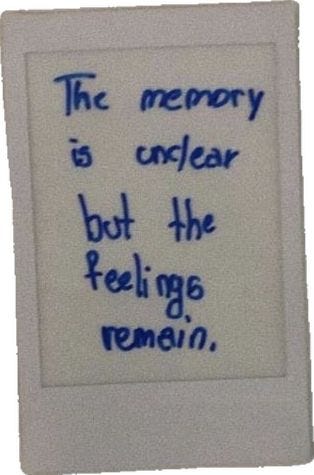 The memory
is unclear
but the
feelings
remain.